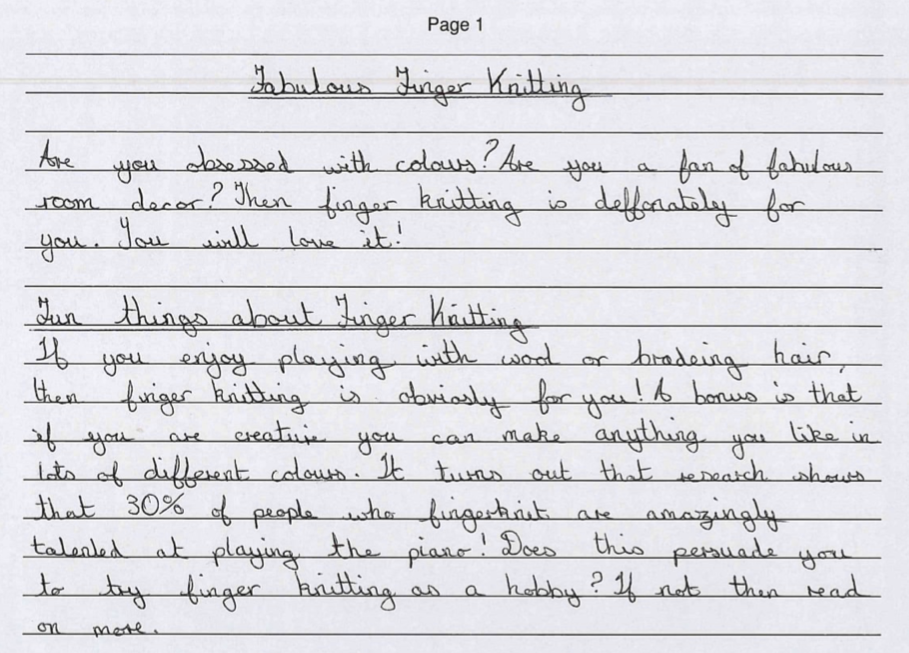 Page 1
Fabulous Finger Knitting
Are you obsessed with colours? Are you a fan of fabulous
room decor? Then finger knitting is deffonately for
you. You will love it!
Fun things about Finger Knitting
If you enjoy playing with wool or bradeing hair,
then finger knitting is obviosly for you! A bonus is that
if you are creative you can make anything you like in
lots of different colours. It turns out that research shows
that 30% of people who fingerknit are amazingly
talented at playing the piano! Does this persuade you
to try finger knitting as a hobby? If not then read
on more.